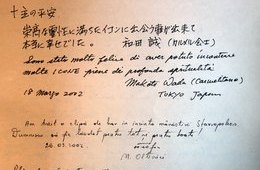 十主の平安
崇高な霊性に満ちたイコンに出会う事が出来て
本当に幸せでした。 和田 誠 (カルメル会士)
Sono stato molto felice di aver potuto incontrare
molte ICONE piene di profonda spiritualità
Makoto Wada (Carmelitano)
18 marzo 2002 TOKYO Japan
Am trăit o clipă de har în incinta mănăstirii Stavropoleos
Dumnezeu să fie lăudat pentru toate și pentru toți!
26.03.2002.